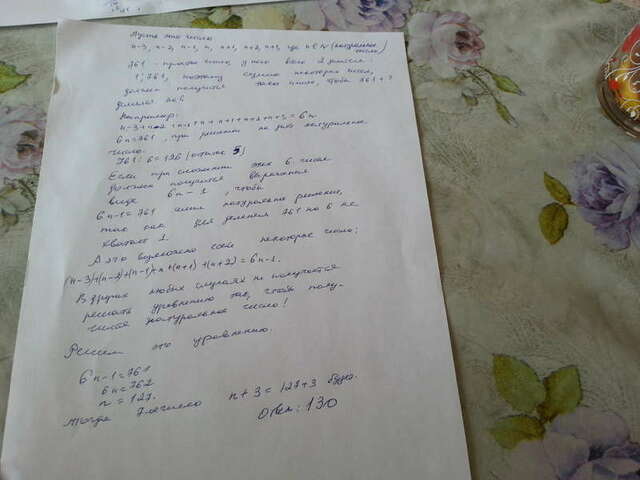 Пусть это числа
n-3, n-2, n-1, n, n+1, n+2, n+3, где n ∈ N (натуральное
число)
761 - простое число, у него всего 2 делителя:
1; 761, поэтому сложив некоторые числа,
должно получится такое число, чтобы 761 + ?
делилось на 6
Например:
n-3+n-2+n-1+n+n+1+n+2+n+3 = 6n
6n = 761, при решении не даёт натуральное
число.
761 : 6 = 126 (остаток 5)
Если при сложении этих 6 чисел
должно получится выражение
вида 6n - 1, чтобы
6n-1 = 761 имел натуральное решение,
так как для деления 761 на 6 не
хватает 1.
А это возможно если некоторые числа:
(n-3)+(n-2)+(n-1)+n+(n+1)+(n+2) = 6n-1.
В других любых случаях не получается
решать уравнению так, чтобы полу-
чился натуральное число!
Решим это уравнению.
6n-1=761
6n=762
n = 127.
тогда 7 число n+3 = 127+3 будет.
Ответ: 130